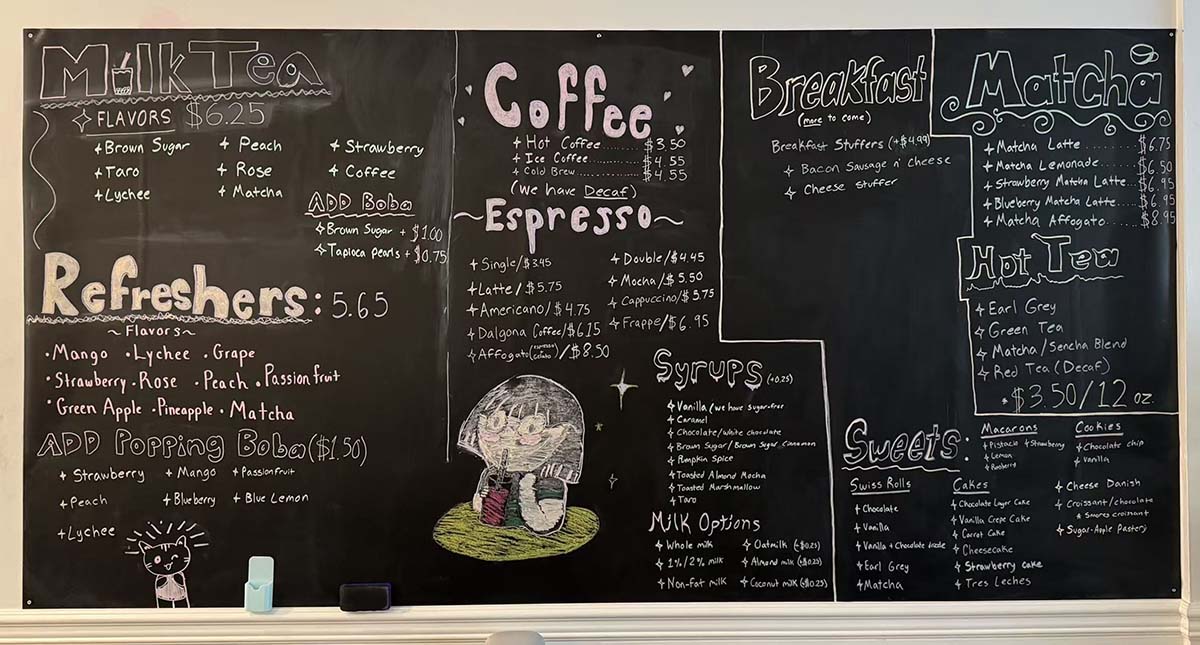 Milk Tea
FLAVORS $6.25
Brown Sugar
Peach
Strawberry
Taro
Rose
Coffee
Lychee
Matcha
ADD Boba
Brown Sugar + $1.00
Tapioca pearls + $0.75
Refreshers: 5.65
~Flavors~
·Mango ·Lychee ·Grape
·Strawberry ·Rose ·Peach ·Passion fruit
·Green Apple ·Pineapple ·Matcha
ADD Popping Boba ($1.50)
Strawberry
Mango
Passionfruit
Peach
Blueberry
Blue Lemon
Lychee
Coffee
Hot Coffee........$3.50
Ice Coffee..........$4.55
Cold Brew..........$4.55
(We have Decaf)
~Espresso~
Single/$3.45
Double/$4.45
Latte/$5.75
Mocha/$5.50
Americano/$4.75
Cappuccino/$5.75
Dalgona Coffee/$6.15
Frappe/$6.95
Affogato(espresso gelato)/$8.50
Syrups (+0.25)
Vanilla/(we have sugar-free
Caramel
Chocolate/white chocolate
Brown Sugar/Brown Sugar Cinnamon
Pumpkin Spice
Toasted Almond Mocha
Toasted Marshmallow
Taro
Milk Options
Whole milk
Oatmilk (+$0.25)
1%/2% milk
Almond milk (+$0.25)
Non-Fat milk
Coconut milk (+$0.25)
Breakfast
(more to come)
Breakfast Stuffers (+$4.99)
Bacon Sausage n' Cheese
Cheese stuffer
Matcha
Matcha Latte........$6.75
Matcha Lemonade....$6.50
Strawberry Matcha Latte...$6.95
Blueberry Matcha Latte...$6.95
Matcha Affogato......$8.95
Hot Tea
Earl Grey
Green Tea
Matcha/Sencha Blend
Red Tea (Decaf)
$3.50/12 oz.
Sweets:
Macarons
Pistacio
Strawberry
Lemon
Cookies
Chocolate chip
Vanilla
Swiss Rolls
Chocolate
Vanilla
Vanilla + Chocolate
Earl Grey
Matcha
Cakes
Chocolate Layer Cake
Vanilla Crepe Cake
Carrot Cake
Cheesecake
Strawberry cake
Tres Leches
Cheese Danish
Croissant/chocolate
Smores croissant
Sugar-Apple Pastery